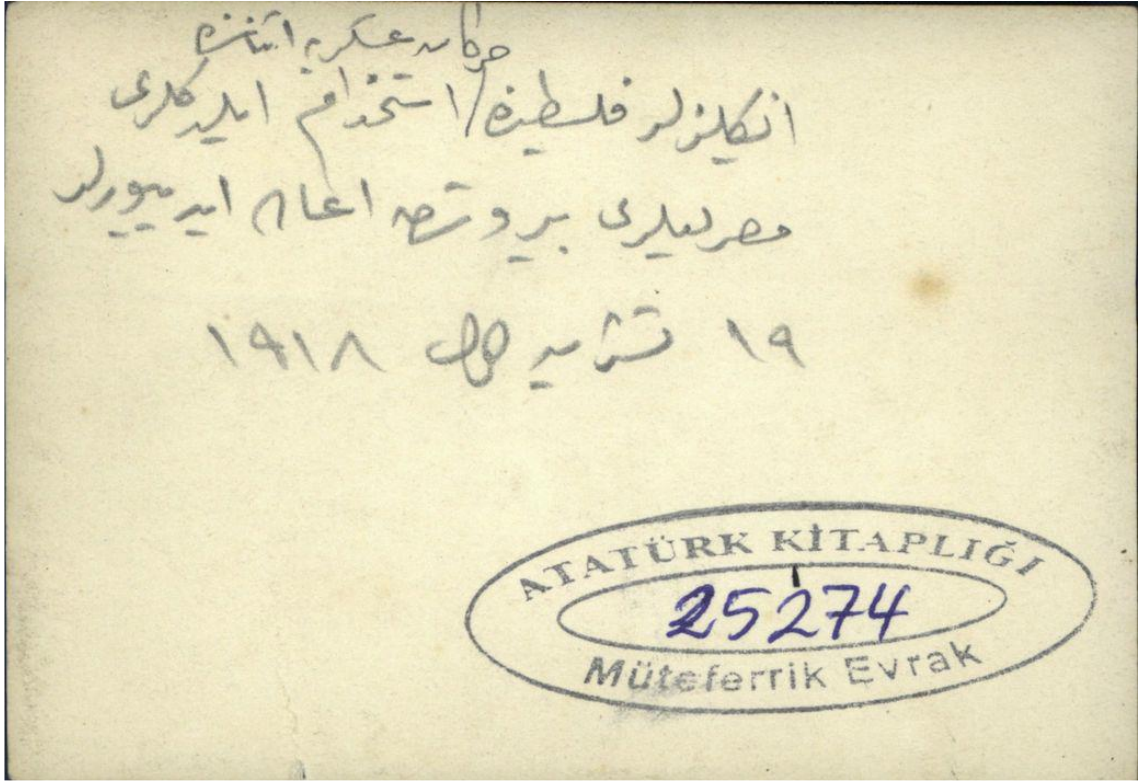 حركات عسكريه اثناسنده
انكليزلر فلسطينده استخدام ايلدكلرى
مصرليلرى بيروتده اعاشه ايدييورلر
١٩ تشرين اول ١٩١٨
ATATÜRK KİTAPLIĞI
25274
Müteferrik Evrak